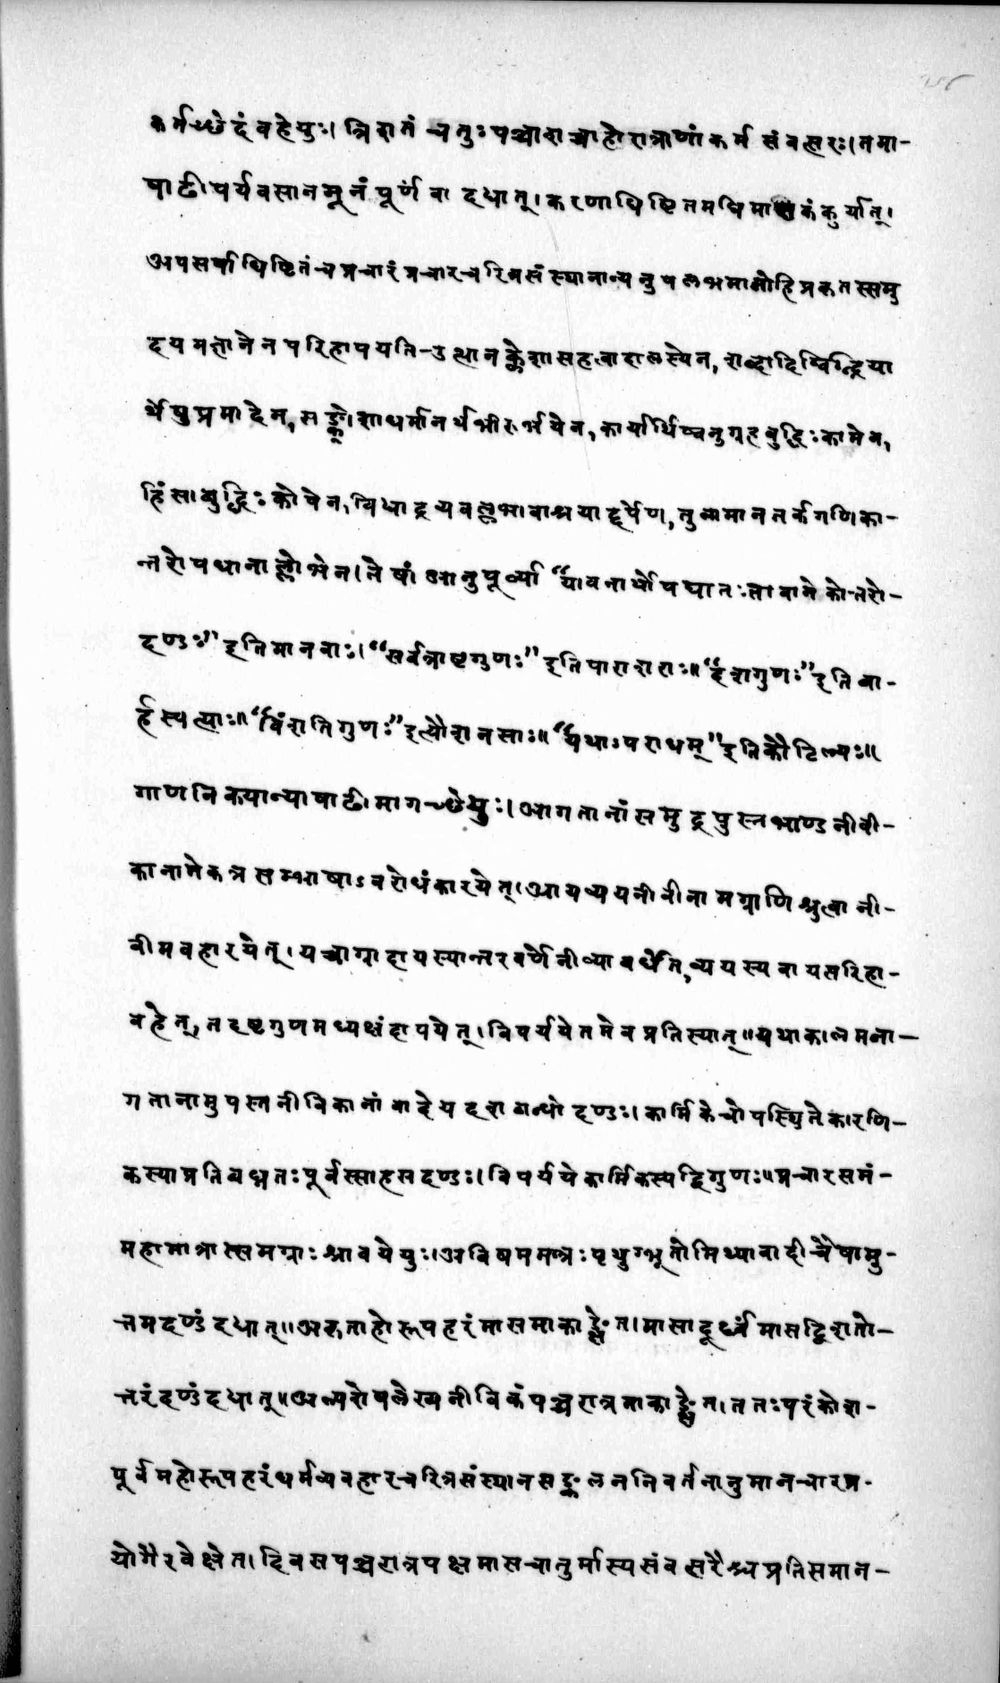 कर्मच्छेदं वहेयुः। त्रिशतं चतुःपञ्चाशच्चाहोरात्राणां कर्म संवत्सरः। तमा-
षाढीपर्यवसानमूनं पूर्णं वा दद्यात्। करणाधिष्ठितमधिमासकं कुर्यात्।
अपसर्पाधिष्ठितं च प्रचारं प्रचारचरित्रसंस्थानान्यनुपलभमानोहि प्रकृतस्समु
दयमज्ञानेन परिहापयति-उत्थानक्लेशासहत्वादालस्येन, शब्दादिष्विन्द्रिया
र्थेषुप्रमादेन, सङ्क्रोशाधर्मानर्थभीरुर्भयेन, कार्यार्थिष्वनुग्रहबुद्धिः कामेन,
हिंसाबुद्धिः कोपेन, विद्याद्रव्यवल्लभावाश्रयाद्दर्पेण, तुलामानतर्कगणिका-
न्तरोपधानाल्लोभेन। तेषां आनुपूर्व्या "यावनार्थोपघातः तावानेकोत्तरो-
दण्डः" इति मानवाः। "सर्वत्राष्टगुणः" इति पाराशराः॥ "दशगुणः" इति बा-
र्हस्पत्याः॥ "विंशतिगुणः" इत्यौशनसाः॥ "यथाऽपराधम्" इति कौटिल्यः॥
गाणनिकयान्याषाढीमागच्छेयुः। आगतानां समुद्रपुस्तभाण्डनीवी-
कानामेकत्र सम्भाषाऽवरोधं कारयेत्। आयव्ययनीवीनामग्राणि श्रुत्वा नी-
वीमवहारयेत्। यच्चाग्राहायस्यान्तरवर्णे नीव्या वर्धेत, व्ययस्य वा यत्परिहा-
वहेत्, तदष्टगुणमध्यक्षं दापयेत्। विपर्यये तमेव प्रतिस्यात्॥ यथाकालमना-
गतानामपुस्तनीविकानां वा देयदशबन्धो दण्डः। कार्मिके चोपस्थिते कारणि-
कस्याप्रतिबध्नतः पूर्वस्साहसदण्डः। विपर्यये कार्मिकस्य द्विगुणः॥ प्रचारसमं-
महामात्रास्समग्राः श्रावयेयुः। अविषममन्त्रः पृथुग्भूतो मिथ्यावादी चैषामु-
त्तमदण्डं दद्यात्॥ अकृताहोरूपहरं मासमाकाङ्क्षेत। मासादूर्ध्वं मासद्विशतो-
त्तरं दण्डं दद्यात्॥ अल्पशेषलेख्यनीविकं पञ्चरात्रमाकाङ्क्षेत। ततः परं कोश-
पूर्वमहोरूपहरं धर्मव्यवहारचरित्रसंस्थानसङ्कलननिवर्तनानुमानचारप्र-
योगैरवेक्षेत। दिवसपञ्चरात्रपक्षमासचातुर्मास्यसंवत्सरैश्च प्रतिसमान-